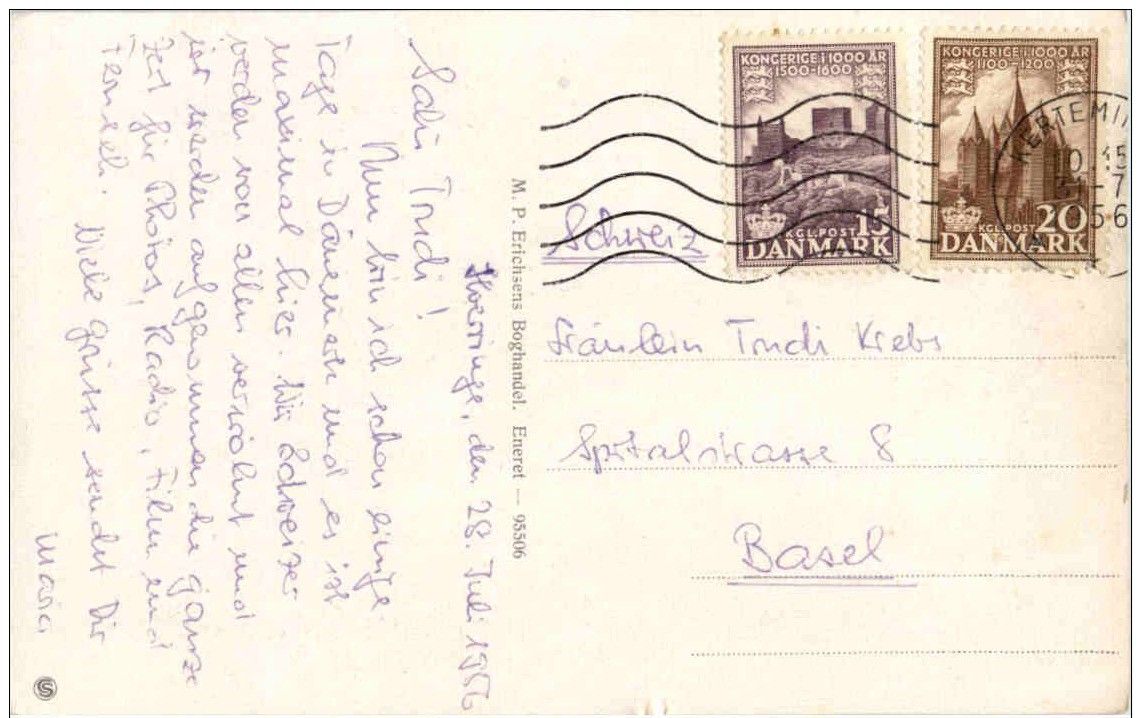 Hverringe, den 28. Juli 1956
Salü Trudi!
Nun bin ich schon einige
Tage in Dänemark und es ist
maximal hier. Wir Schweizer
werden von allen verwöhnt und
wir werden aufgenommen die ganze
Zeit für Photos, Radio, Film und
Fernseh. Viele Grüsse sendet Dir
Maria
M. P. Erichsens Boghandel. Eneret — 95506
KONGERIGE I 1000 ÅR
1500-1600
15
KGL. POST
DANMARK
KONGERIGE I 1000 ÅR
1100-1200
20
KGL. POST
DANMARK
KERTEMI
Schweiz
Fräulein Trudi Krebs
Spitalstrasse 8
Basel
S